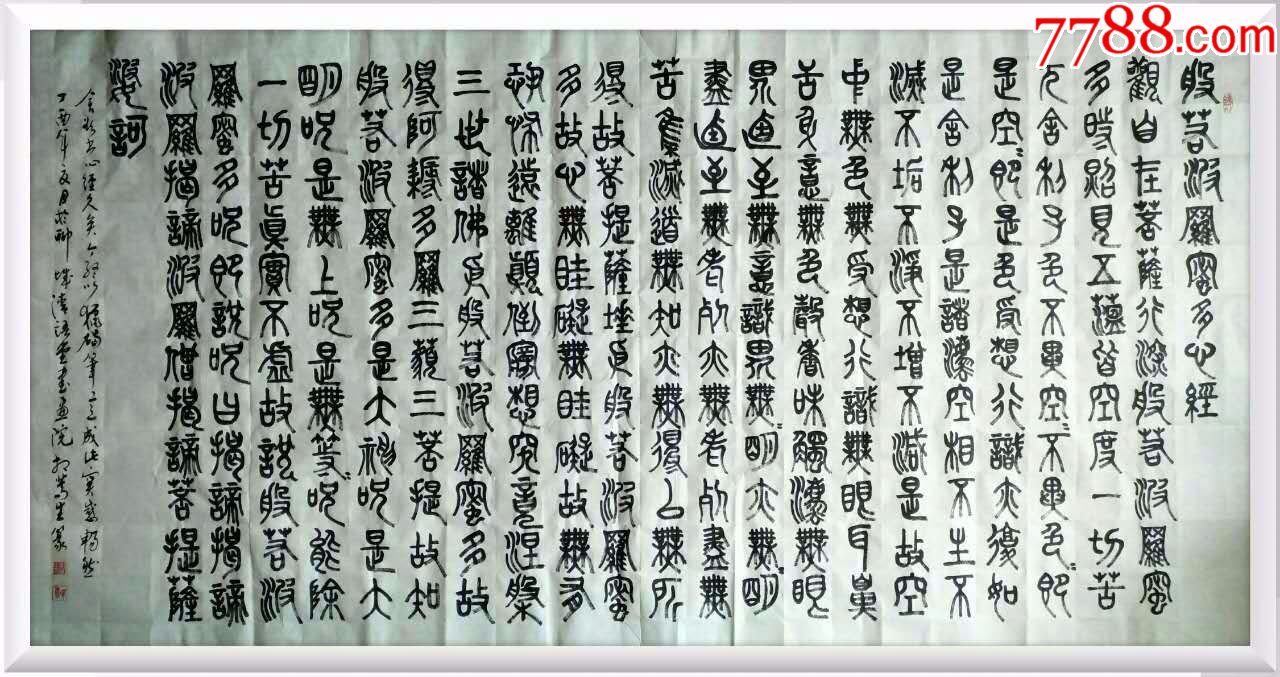 7788.com
般若波羅蜜多心經
觀自在菩薩行深般若波羅蜜
多時照見五蘊皆空度一切苦
厄舍利子色不異空〻不異色〻即
是空〻即是色受想行識亦復如
是舍利子是諸法空相不生不
滅不垢不淨不增不減是故空
中無色無受想行識無眼耳鼻
舌身意無色聲香味觸法無眼
界乃至無意識界無明亦無明
盡乃至無老死亦無老死盡無
苦集滅道無知亦無得以無所
得故菩提薩埵依般若波羅蜜
多故心無罣礙無罣礙故無有
恐怖遠離顛倒夢想究竟涅槃
三世諸佛依般若波羅蜜多故
得阿耨多羅三藐三菩提故知
般若波羅蜜多是大神呪是大
明呪是無上呪是無等〻呪能除
一切苦真實不虛故說般若波
羅蜜多呪即說呪曰揭諦揭諦
波羅揭諦波羅僧揭諦菩提薩
婆訶
書心經久矣今 筆 成此實感暢然
丁酉年夏月於聊城清 堂書畫院 篆